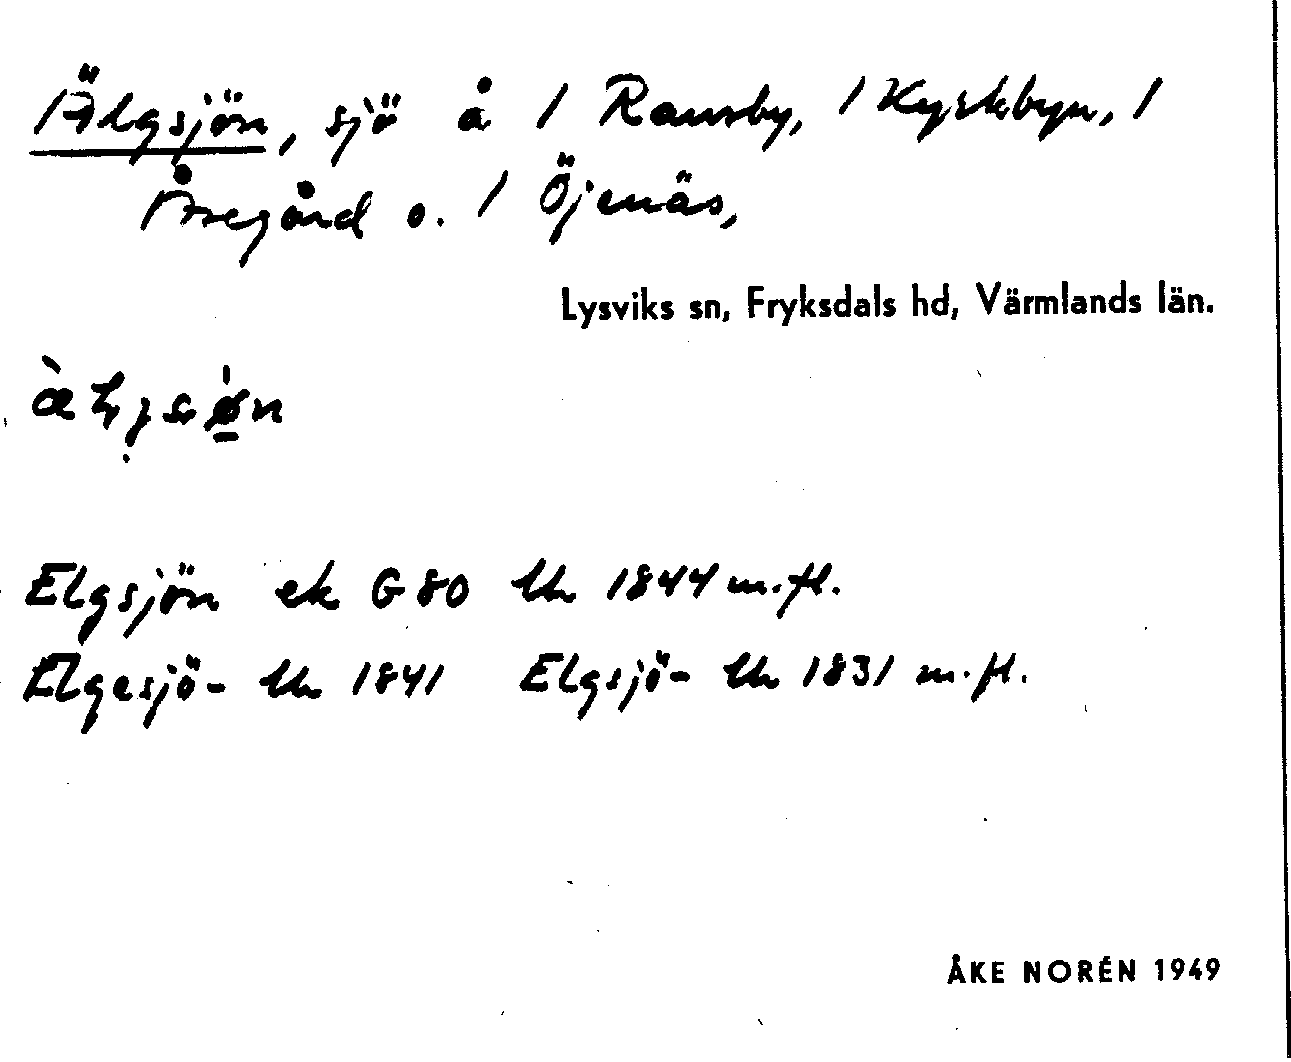 Älgsjön, sjö å 1 Ransby, 1 Kyrkbyn, 1
Åregård o. 1 Öjenäs,
Lysviks sn, Fryksdals hd, Värmlands län.
Elgsjön ek G 80 lh 1844 m.fl.
Elgesjö- lh 1841 Elgsjö- lh 1831 m.fl.
ÅKE NORÉN 1949